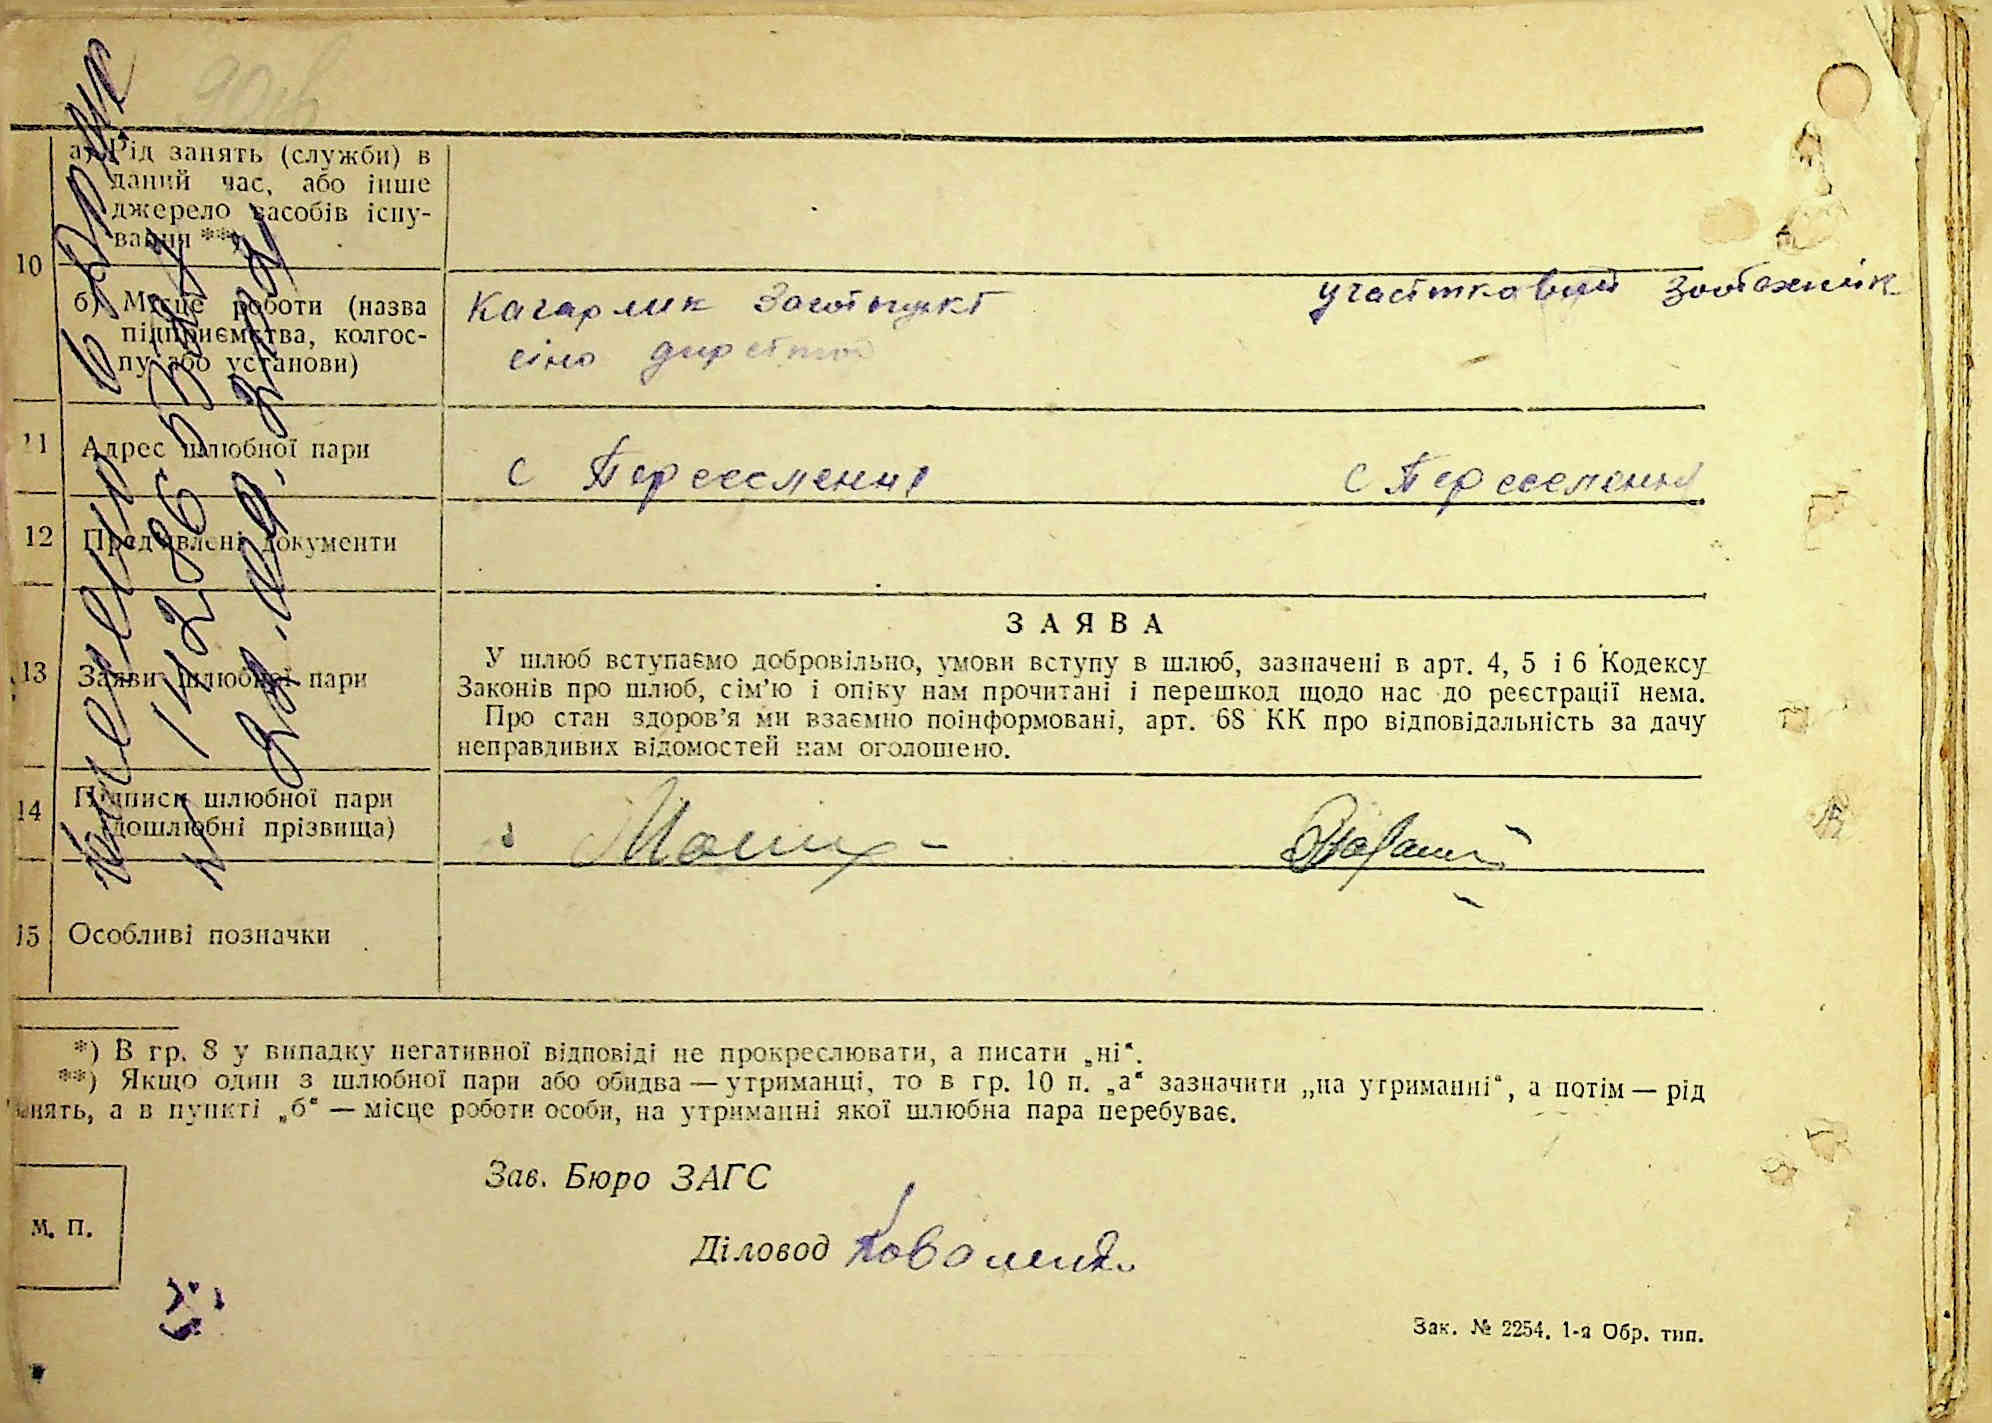 10
а) Рід занять (служби) в
даний час, або інше
джерело засобів існу-
вання **)
б) Місце роботи (назва
підприємства, колгос-
пу або установи)
Кагарлик Заготпункт
сіно
участковий Зоотехнік
11 Адрес шлюбної пари
с Переселення
с Переселення
12 Пред'явлені документи
13 Заяви шлюбної пари
ЗАЯВА
У шлюб вступаємо добровільно, умови вступу в шлюб, зазначені в арт. 4, 5 і 6 Кодексу
Законів про шлюб, сім'ю і опіку нам прочитані і перешкод щодо нас до реєстрації нема.
Про стан здоров'я ми взаємно поінформовані, арт. 68 КК про відповідальність за дачу
неправдивих відомостей нам оголошено.
14 Підписи шлюбної пари
(дошлюбні прізвища)
15 Особливі позначки
*) В гр. 8 у випадку негативної відповіді не прокреслювати, а писати „ні“.
**) Якщо один з шлюбної пари або обидва — утриманці, то в гр. 10 п. „а“ зазначити „на утриманні“, а потім — рід
занять, а в пункті „б“ — місце роботи особи, на утриманні якої шлюбна пара перебуває.
Зав. Бюро ЗАГС
М. П.
Діловод
Зак. № 2254. 1-а Обр. тип.